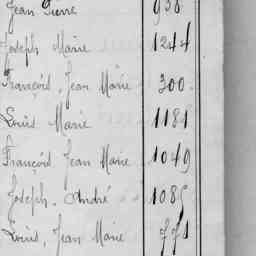 Jean Pierre 938
Joseph Marie 1244
François, Jean Marie 300
Louis Marie 1181
François Jean Marie 1049
Joseph. André 1085
Louis, Jean Marie 771